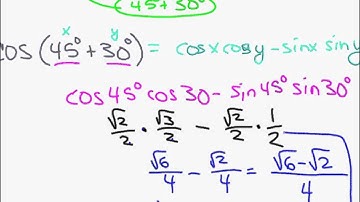 45+30°
x y
cos(45°+30°) = cosxcosy-sinxsiny
cos45°cos30-sin45°sin30°
√2/2 · √3/2 - √2/2 · 1/2
√6/4 - √2/4 = √6-√2/4